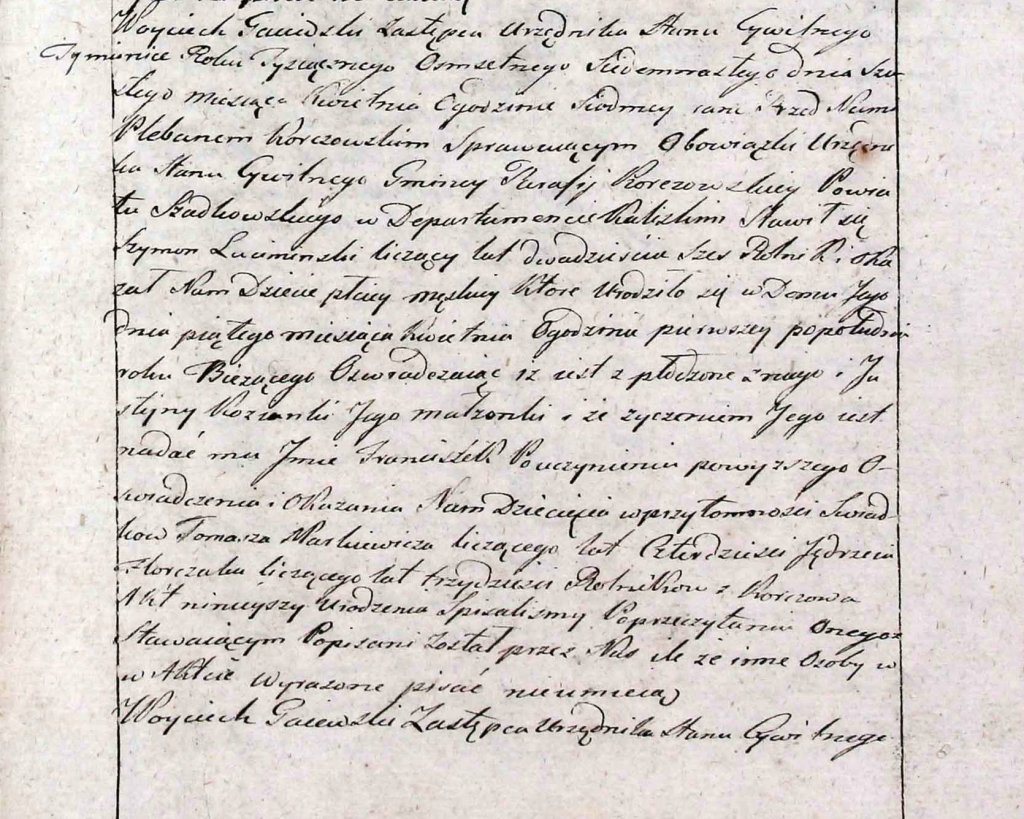 Woyciech Gaiewski Zastępca Urzędnika Stanu Cywilnego
Tymienice Roku Tysiącznego Osmsetnego Siedemnastego dnia Szu-
stego miesiąca Kwietnia O godzinie Siodmey rano Przed Nami
Plebanem Korczowskim Sprawuiącym Obowiązki Urzędni
ka Stanu Cywilnego Gminey Parafij Korczowskiey Powia
tu Szadkowskiego w Departamencie Kaliskim Stawił się
Szymon Lucimienski liczący lat dwadziescia Szes Rolnik i oka
zał Nam Dziecie płciey męskiey Ktore Urodziło się w Domu Jego
dnia piątego miesiąca Kwietnia O godzinie pierwszey popołudniu
roku Bieżącego Oswiadczaiąc iż iest z płodzone z niego i Ju
styny Kozianki Jego małzonki i że zyczeniem Jego iest
nadać mu Jmie Franciszek Po uczynieniu powyższego O-
swiadczenia i Okazania Nam Dziecięcia w przytomności Swiad-
kow Tomasza Markiewicza liczącego lat Czterdzieści Jędrzeia
liczącego lat trzydzieści Rolnikow z Korczewa
Akt ninieyszy Urodzenia Spisalismy Po przeczytaniu Onegoz
Stawaiącym Popisani został przez Nas ile ze inne Osoby w
w Akcie Wyrazone pisać nieumieią
Woyciech Gaiewski Zastępca Urzędnika Stanu Cywilnego